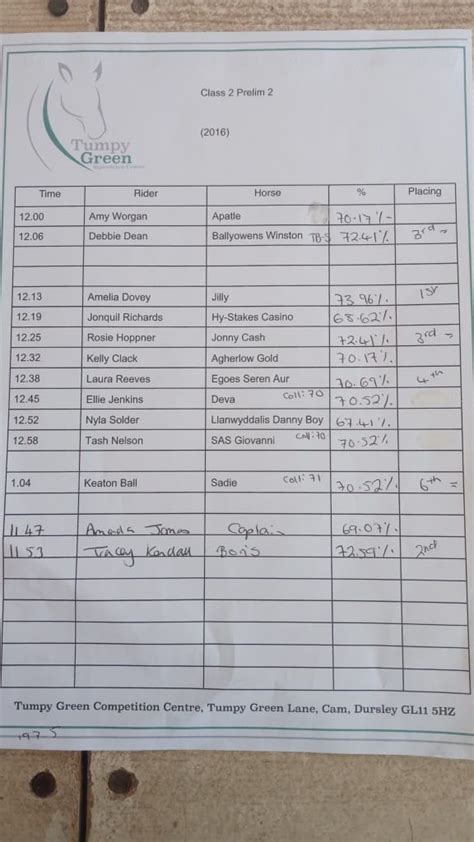 Class 2 Prelim 2
(2016)
Tumpy
Green
Time Rider Horse % Placing
12.00 Amy Worgan Apatle 70.17%
12.06 Debbie Dean Ballyowens Winston 72.41% 3rd =
12.13 Amelia Dovey Jilly 73.96% 1st
12.19 Jonquil Richards Hy-Stakes Casino 68.62%
12.25 Rosie Hoppner Jonny Cash 72.41% 3rd =
12.32 Kelly Clack Agherlow Gold 70.17%
12.38 Laura Reeves Egoes Seren Aur 70.69% 4th
12.45 Ellie Jenkins Deva Coll: 70 70.52%
12.52 Nyla Solder Llanwyddalis Danny Boy 67.41%
12.58 Tash Nelson SAS Giovanni Coll: 70 70.52%
1.04 Keaton Ball Sadie Coll: 71 70.52% 6th =
11 47 Jones Captain 69.07%
11 53 Tracey Kendall Boris 72.59% 2nd
Tumpy Green Competition Centre, Tumpy Green Lane, Cam, Dursley GL11 5HZ